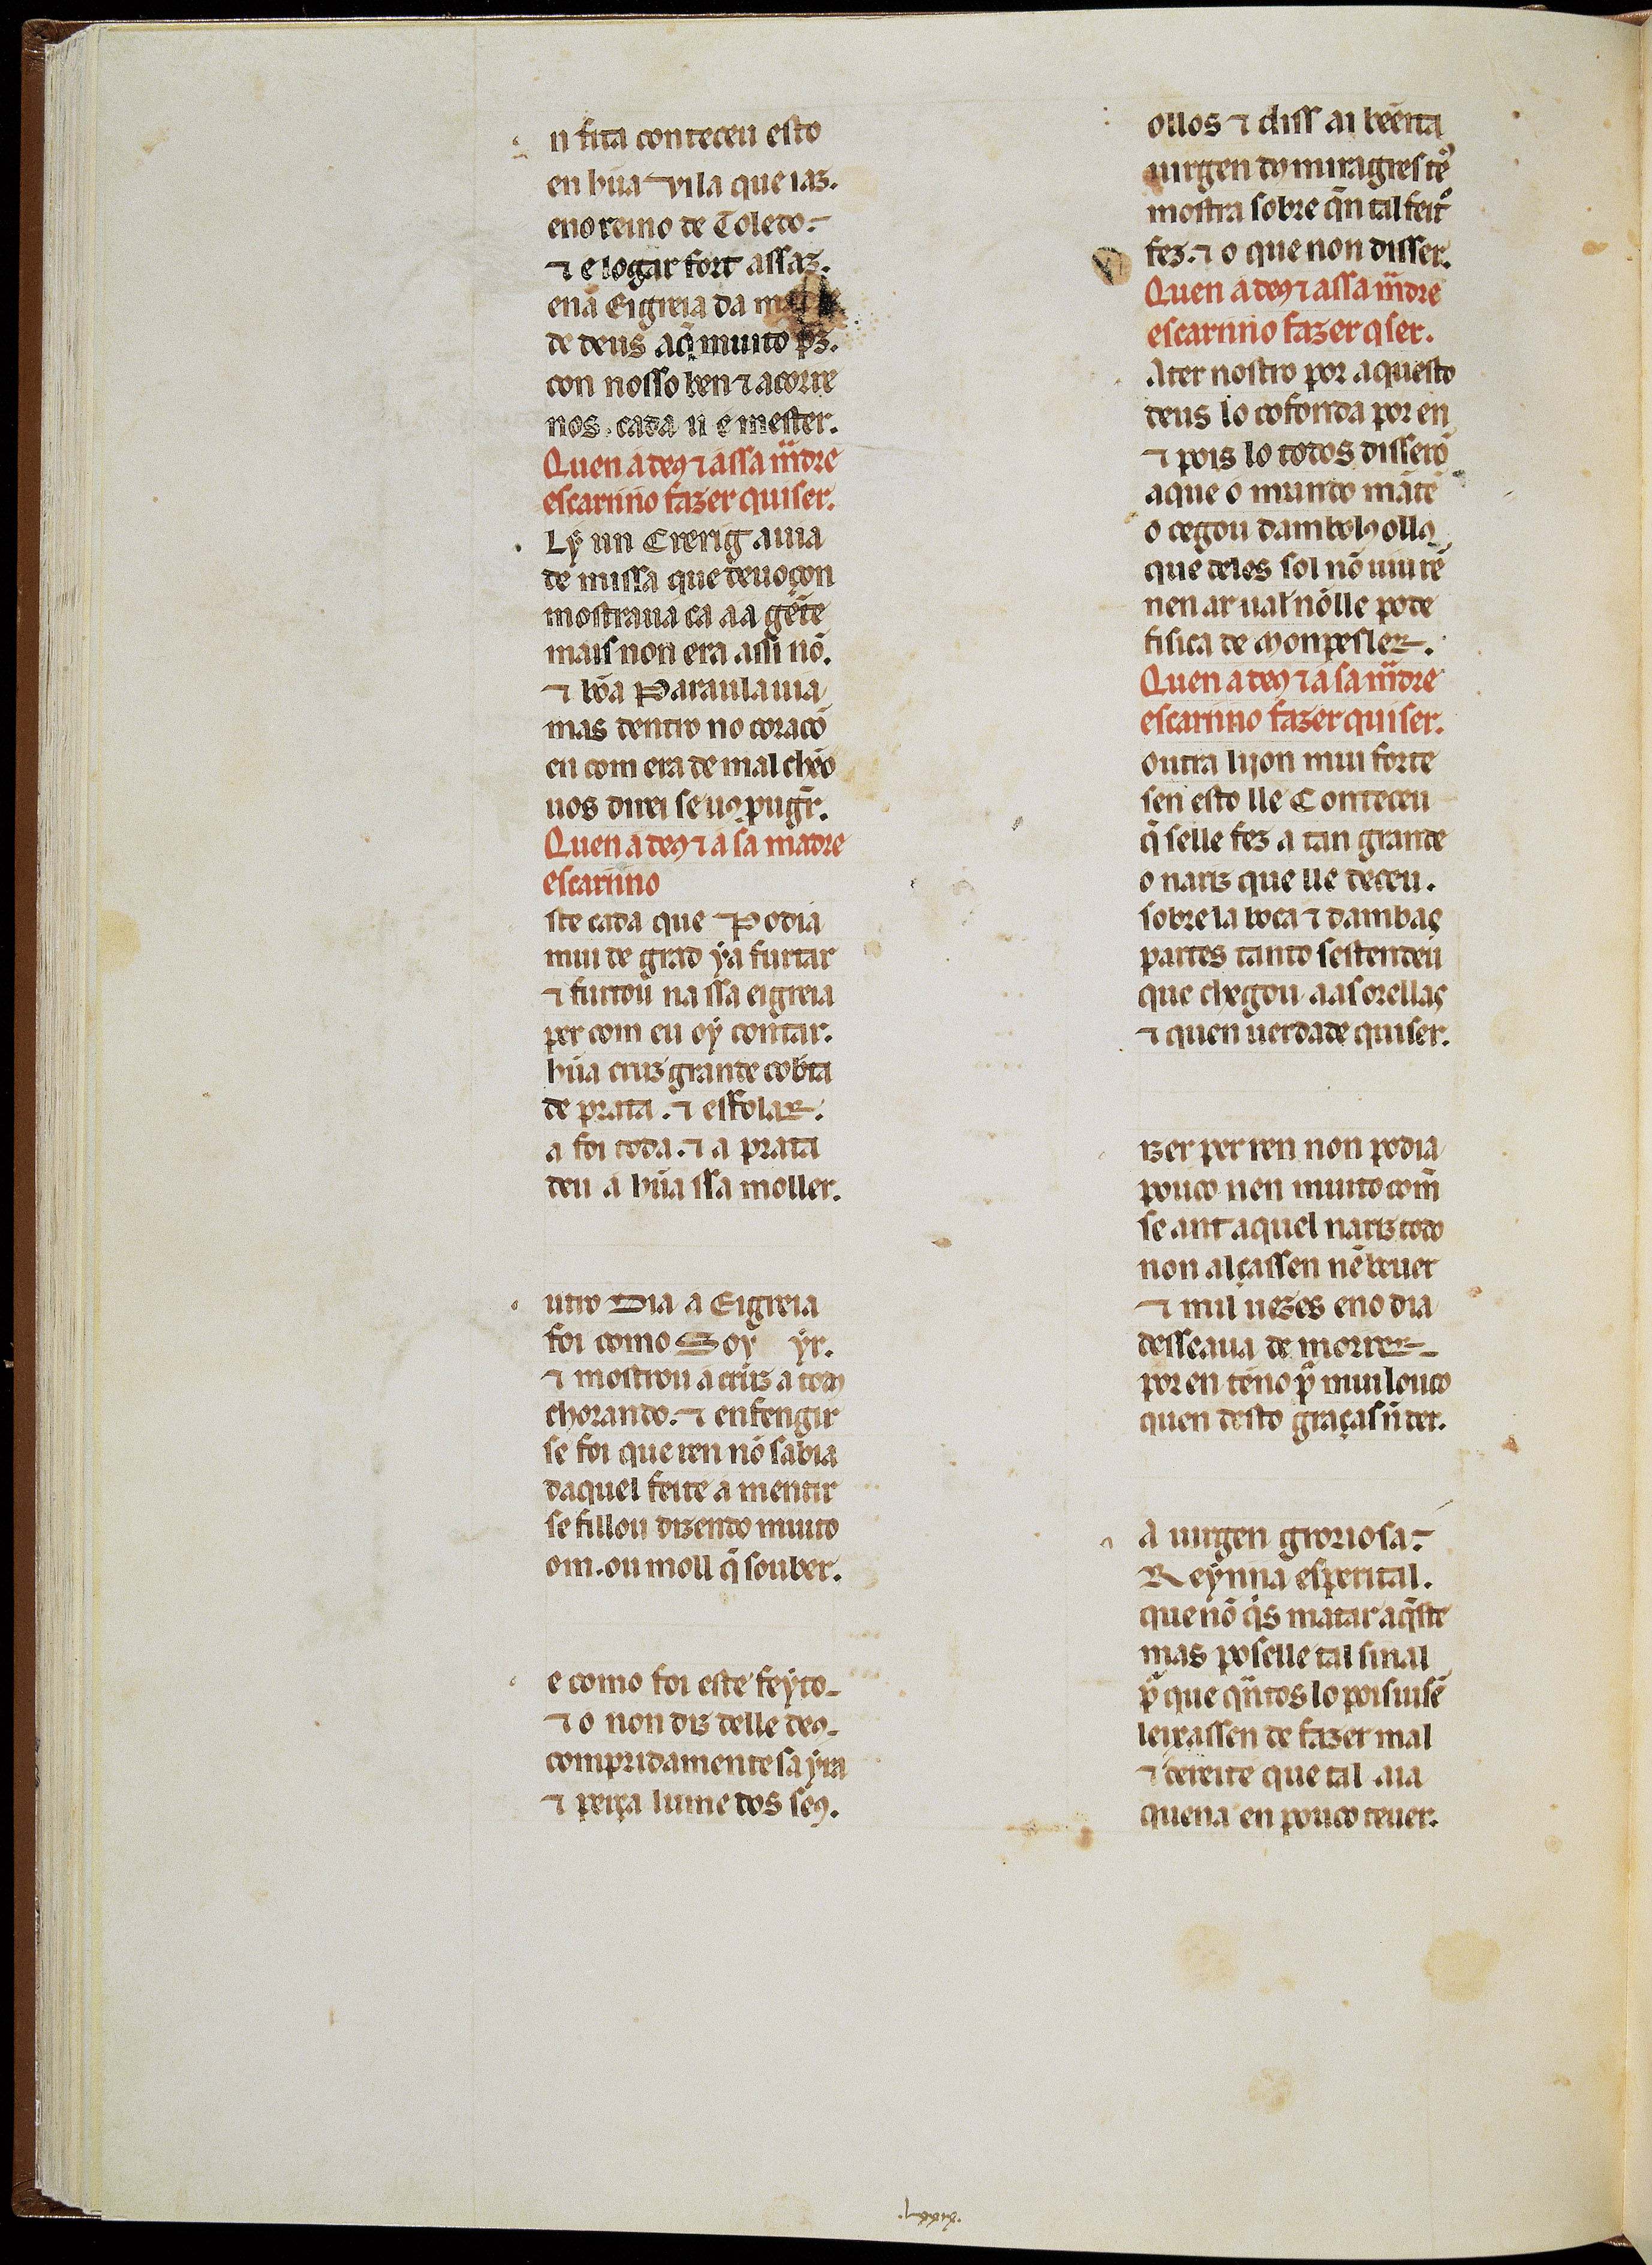 n fita conteceu esto
en hũa vila que iaz.
eno reino de Toledo.
⁊ e logar fort assaz.
enã Eigreia da
de deus aq̃ muito pz̃.
con nosso ben ⁊ acorre
nos. cada u e mester.
Quen a deꝯ ⁊ assa m̃dre
escarnno fazer quiser.
Ly un Crerig auia
de missa que deuoçon
mostraua ca aa gẽte
mais non era assi nõ.
⁊ bõa Paraulauia
mas dentro no coraçõ
eu com era de mal chẽo
uos direi se uꝯ pugr̃.
Quen a deꝯ ⁊ a sa madre
escarnno
ste cada que Podia
mui de grad ya furtar
⁊ furtou na ssa eigreia
per com eu oy contar.
hũa cruz grande cob̃ta
de prata. ⁊ esfolar.
a foi toda. ⁊ a prata
deu a hũa ssa moller.
utro Dia a Eigreia
foi como Soy yr.
⁊ mostrou a cruz a todꝯ
chorando. ⁊ enfengir
se foi que ren nõ sabia
daquel feite a mentir
se fillou dizendo muito
om. ou moll q̃ souber.
e como foi este feyto
⁊ o non diz delle deꝯ.
compridamente sa yra
⁊ perça lume dos seꝯ.
ollos ⁊ diss ai bẽeita
uirgen dy miragres tẽꝰ
mostra sobre q̃n tal feit̃
fez. ⁊ o que non disser.
Quen a deꝯ ⁊ assa m̃dre
escarnno fazer q̃ser.
Ater nostro por aquesto
deus lo cofonda por en
⁊ pois lo todos disserõ
aque o mundo mãtẽ
o cegou dambolꝯ ollꝯ
que deles sol nõ uiu rẽ
nen ar ual nõlle pode
fisica de Monpesler.
Quen a deꝯ ⁊ a sa m̃dre
escarnno fazer quiser.
outra lijon mui forte
sen esto lle Conteceu
q̃ selle fez a tan grande
o nariz que lle deceu.
sobre la boca ⁊ dambas
partes tanto sestendeu
que chegou aas orellas
⁊ quen uerdade quiser.
izer per ren non podia
pouco nen muito com̃
se ant aquel nariz todo
non alçassen nẽ beuer
⁊ mil uezes eno dia
desseaua de morrer
por en teno p̃ mui louco
quen desto graças ñ der.
A uirgen groriosa.
Reynna esperital.
que nõ q̃s matar aq̃ste
mas poselle tal sinal
p̃ que q̃ntos lo pois uisẽ
leixassen de fazer mal
⁊ dereite que tal aia
quena en pouco teuer.